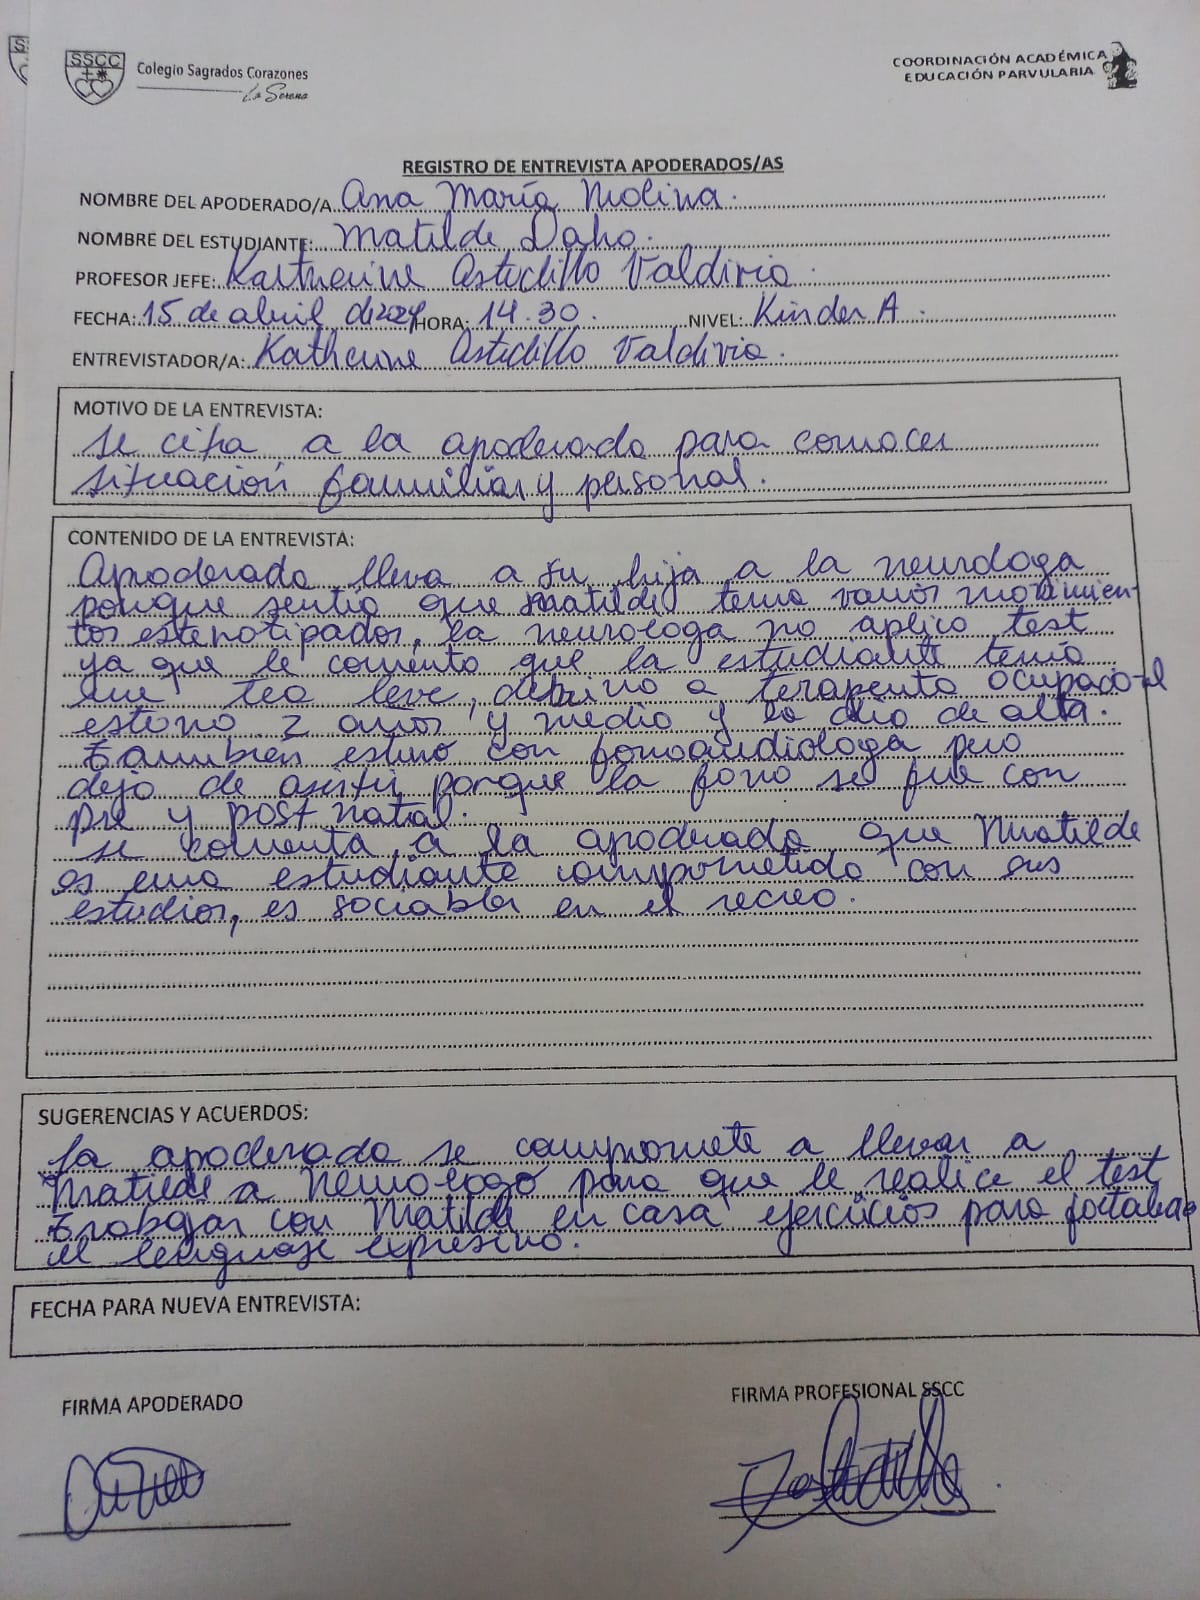 SSCC
Colegio Sagrados Corazones
La Serena
COORDINACIÓN ACADÉMICA
EDUCACIÓN PARVULARIA
REGISTRO DE ENTREVISTA APODERADOS/AS
NOMBRE DEL APODERADO/A Ana María Molina.
NOMBRE DEL ESTUDIANTE: Matilde Daho.
PROFESOR JEFE: Katherine Astudillo Valdivia.
FECHA: 15 de abril de 2024 HORA: 14.30. NIVEL: Kinder A.
ENTREVISTADOR/A: Katherine Astudillo Valdivia.
MOTIVO DE LA ENTREVISTA:
se cita a la apoderada para conocer
situación familiar y personal.
CONTENIDO DE LA ENTREVISTA:
Apoderada lleva a su hija a la neurologa
porque sentia que Matilde tenia varios movimien-
tos esterotipados, la neurologa no aplico test
ya que le comento que la estudiante tenia
un tea leve, derivo a terapeuta ocupacional
estuvo 2 años y medio y la dio de alta.
también estuvo con fonoaudiologa pero
dejo de asistir porque la fono se fue con
pre y post natal.
se comenta a la apoderada que Matilde
es una estudiante comprometida con sus
estudios, es sociable en el recreo.
SUGERENCIAS Y ACUERDOS:
La apoderada se compromete a llevar a
Matilde a neurologo para que le realice el test
trabajar con Matilde en casa ejercicios para fortalecer
el lenguaje expresivo.
FECHA PARA NUEVA ENTREVISTA:
FIRMA APODERADO
FIRMA PROFESIONAL SSCC